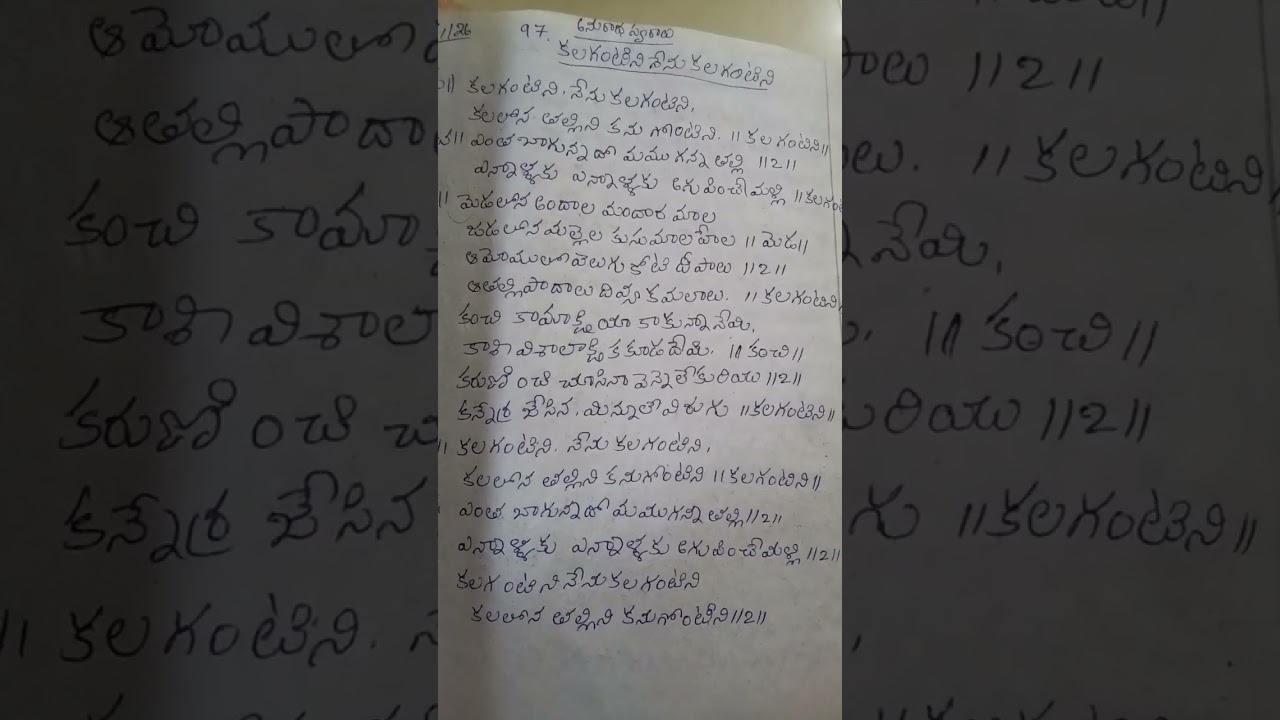 1/26 97. అనురాధ స్వరాలు
కలగంటిని నేను కలగంటిని
కలగంటిని, నేను కలగంటిని,
కలలోన తల్లిని కనుగొంటిని. ॥ కలగంటిని॥
ఎంత బాగున్నదో మముగన్న తల్లి ॥2॥
ఎన్నాళ్ళకు ఎన్నాళ్ళకు అగుపించే మళ్లి ॥కలగంటి
॥ మెడలోన అందాల మందార మాల
జడలోన మల్లెల కుసుమాల హేల ॥ మెడ॥
ఆమోములో వెలుగు కోటి దీపాలు ॥2॥
ఆతల్లి పాదాలు దివ్య కమలాలు. ॥ కలగంటిని,
కంచి కామాక్షియో కాకున్నానేమి,
కాశి విశాలాక్షి క కూడదేమి. ॥ కంచి॥
కరుణించి చూసినా వెన్నెలే కురియు ॥2॥
కన్నెర్ర జేసిన. మిన్నులే విరుగు ॥కలగంటిని॥
॥ కలగంటిని. నేను కలగంటిని,
కలలోన తల్లిని కనుగొంటిని ॥కలగంటిని॥
ఎంత బాగున్నాదో మముగన్న తల్లి॥2॥
ఎన్నాళ్ళకు ఎన్నాళ్ళకు అగుపించే మళ్లి ॥2॥
కలగంటిని నేను కలగంటిని
కలలోన తల్లిని కనుగొంటిని॥2॥